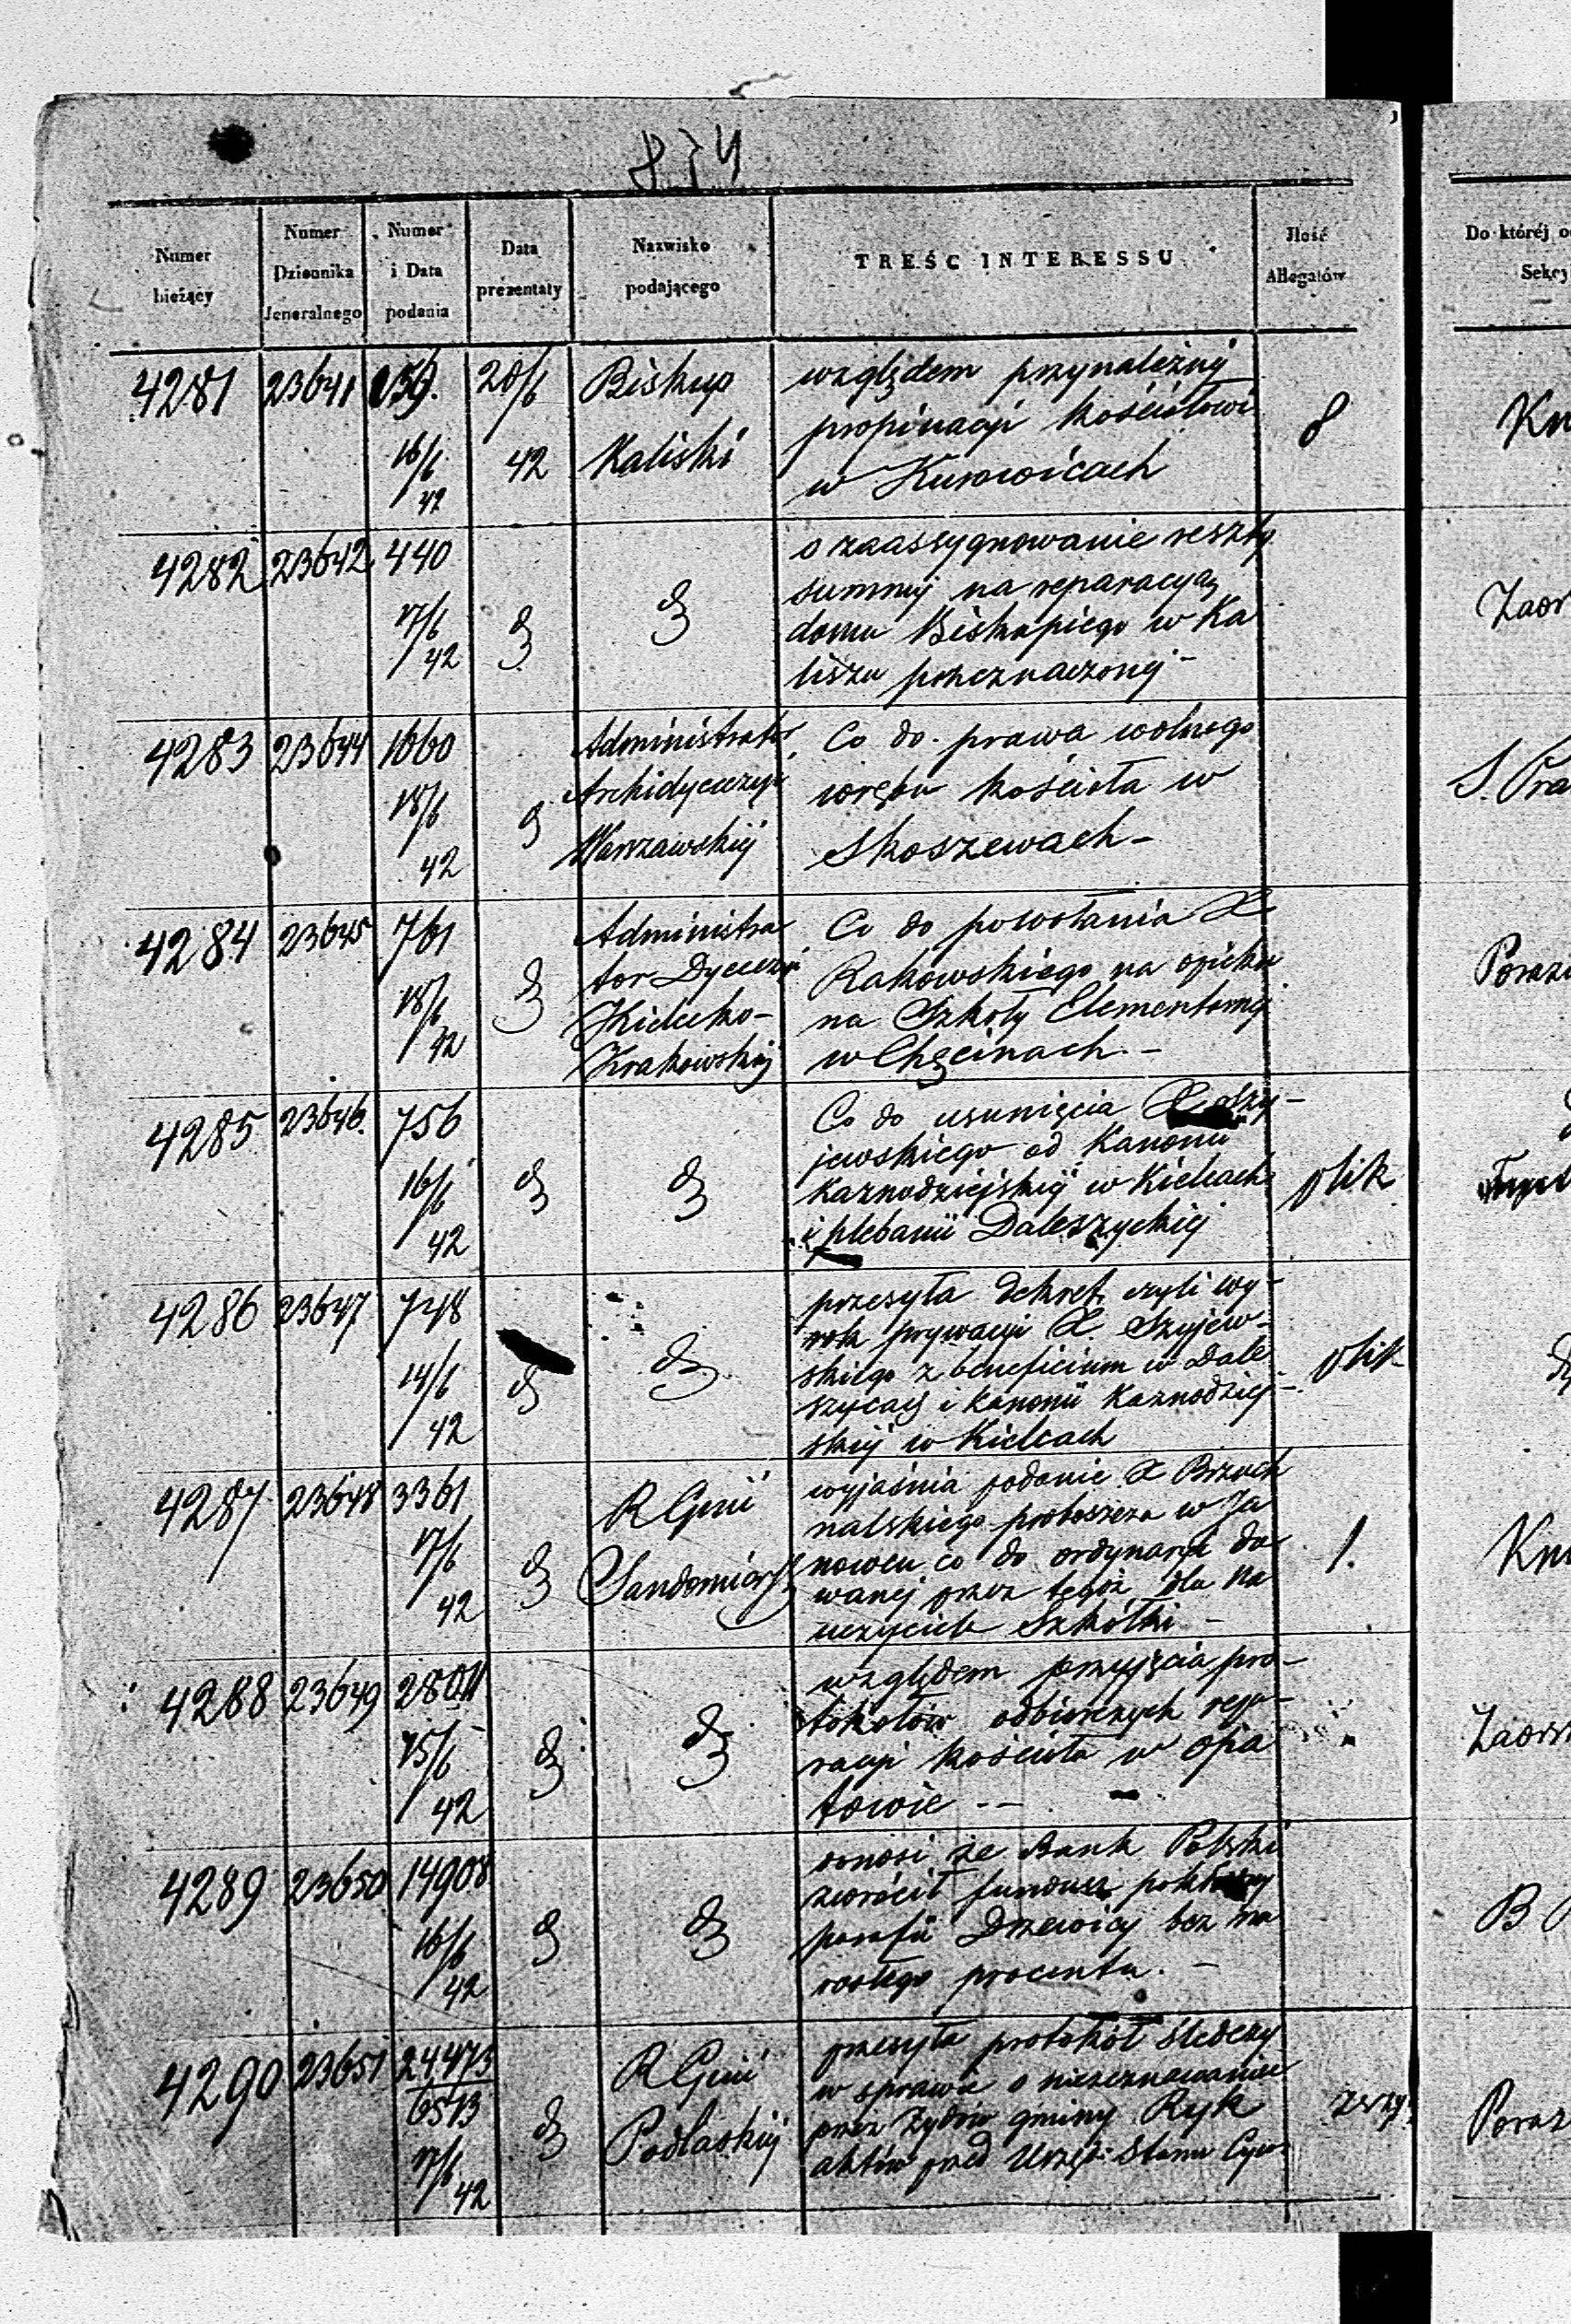 874
Numer bieżący
Numer Dziennika Jeneralnego
Numer i Data podania
Data prezentaty
Nazwisko podającego
TREŚC INTERESSU
Jlość Allegatów
Do któréj
Sekcy
4281 23641 16/6 42 20/6 42 Biskup Kaliski
względem przynależnéj
propinacji kościołowi
w Kurowicach
8
4282 23642 440 17/6 42
o zaassygnowanie reszty
summy na reparacyą
domu Biskupiego w Ka
liszu przeznaczonéj
4283 23644 1060 18/6 42
Administrator
Archidyecezyi
Warszawskiéj
Co do prawa wolnego
wrębu kościoła w
Skoszewach -
S. Pra
4284 23645 761 18/6 42
Administra
tor Dyecezyi
Kielecko-
Krakowskiéj
Co do powołania X
Rakowskiego na opiekuna
na Szkoły Elementarnéj
w Chęcinach. -
4285 23646. 756 16/6 42
Co do usunięcia X Szy-
jewskiego od Kanonii
Kaznodziejskiéj w Kielcach
i plebanii Daleszyckiej
plik
4286 23647 748 14/6 42
przesyła dekret czyli wy-
rok prywacyi X. Szyjew-
skiego z beneficium w Dale
szycach i kanonii Kaznodziej-
skiéj w Kielcach
plik
4287 23648 3361 17/6 42
R Gbrnii
Sandomiers
wyjaśnia podanie X Brzuch
nalskiego proboszcza w Ja
nowcu co do ordynaryi da
wanej przez tegoż dla na
uczyciela Szkółki -
1.
4288 23649 15/6 42
względem przyjęcia pro-
tokołów odbiorczych repa-
racyi kościoła w Opa
towie --
4289 23650 14908 16/6 42
donosi że Bank Polski
zwrócił fundusz
parafii Drzewicy bez na
rosłego procentu. -
4290 23651 24473 6513 17/6 42
R Gbrnii
Podlaskiéj
przesyła protokół śledczy
w sprawie o niezeznawanie
przez Żydów gminy Ryk
aktów przed Urzęd: Stanu Cyw